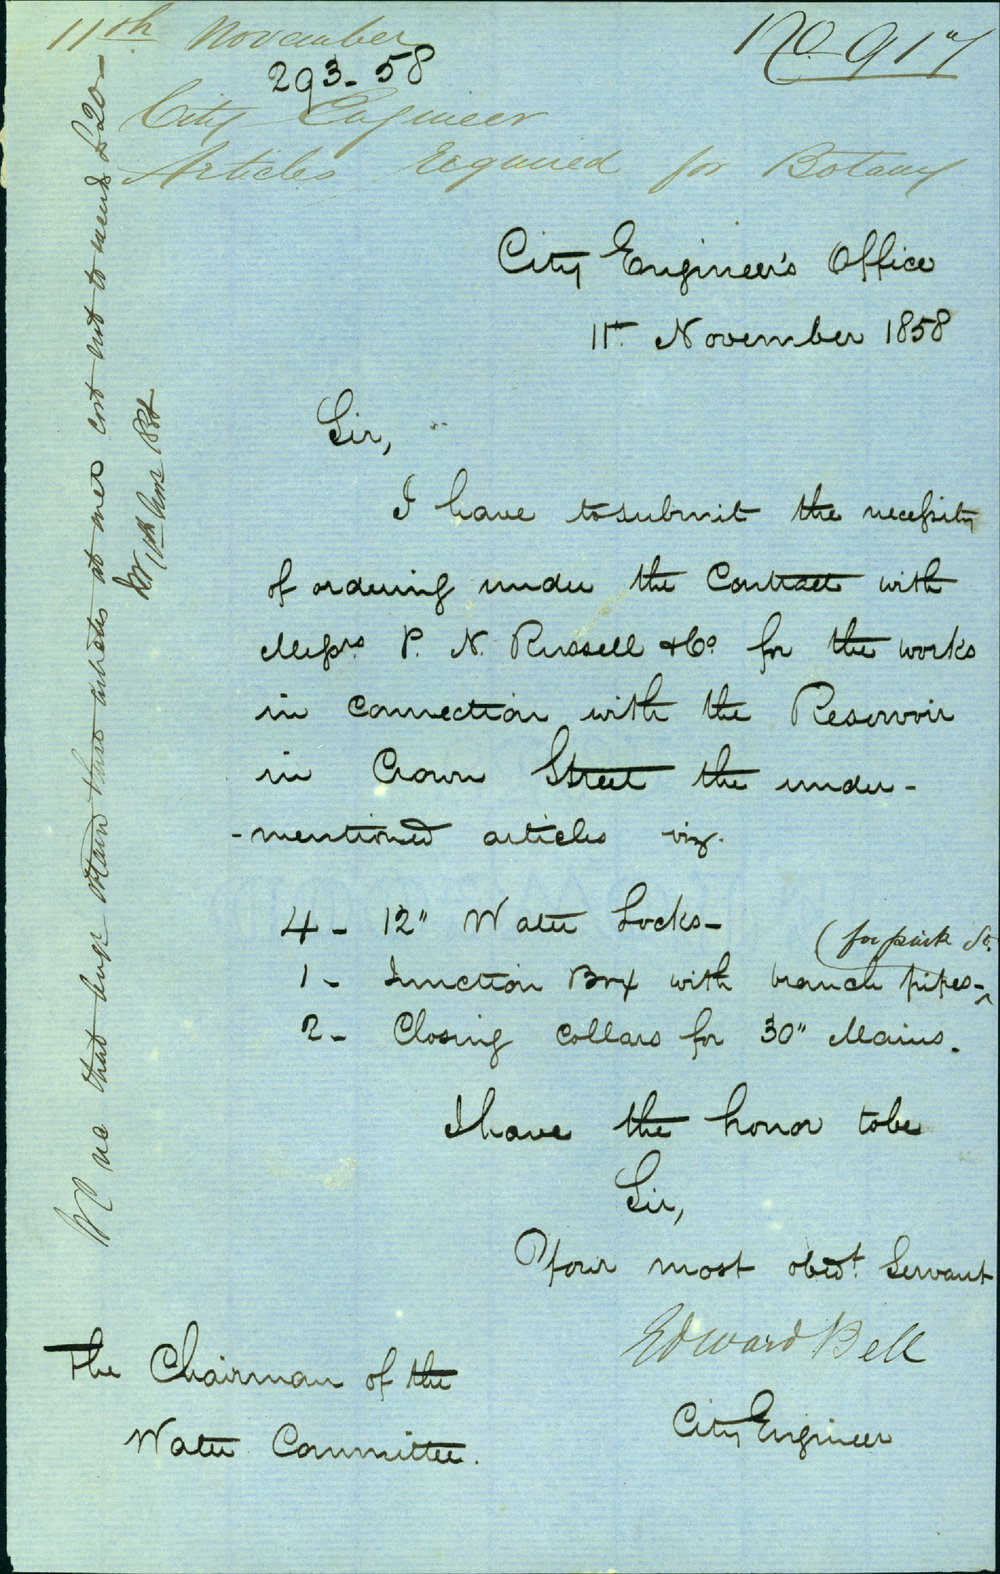 11th November
No 917
293-58
City Engineer
Articles Required for Botany
City Engineer's Office
11th November 1858
Sir,
I have to submit the necessity
of ordering under the Contract with
Messrs P. N. Russell & Co for the works
in connection with the Reservoir
in Crown Street the under-
-mentioned articles viz.
4 - 12" Water Locks -
(for park St.
1 - Junction Box with branch pipes -
2 - Closing Collars for 30" Mains.
I have the honor to be
Sir,
Your most obedt. Servant
Edward Bell
City Engineer
The Chairman of the
Water Committee.
that obtain these articles at once cost not to £20-
11th